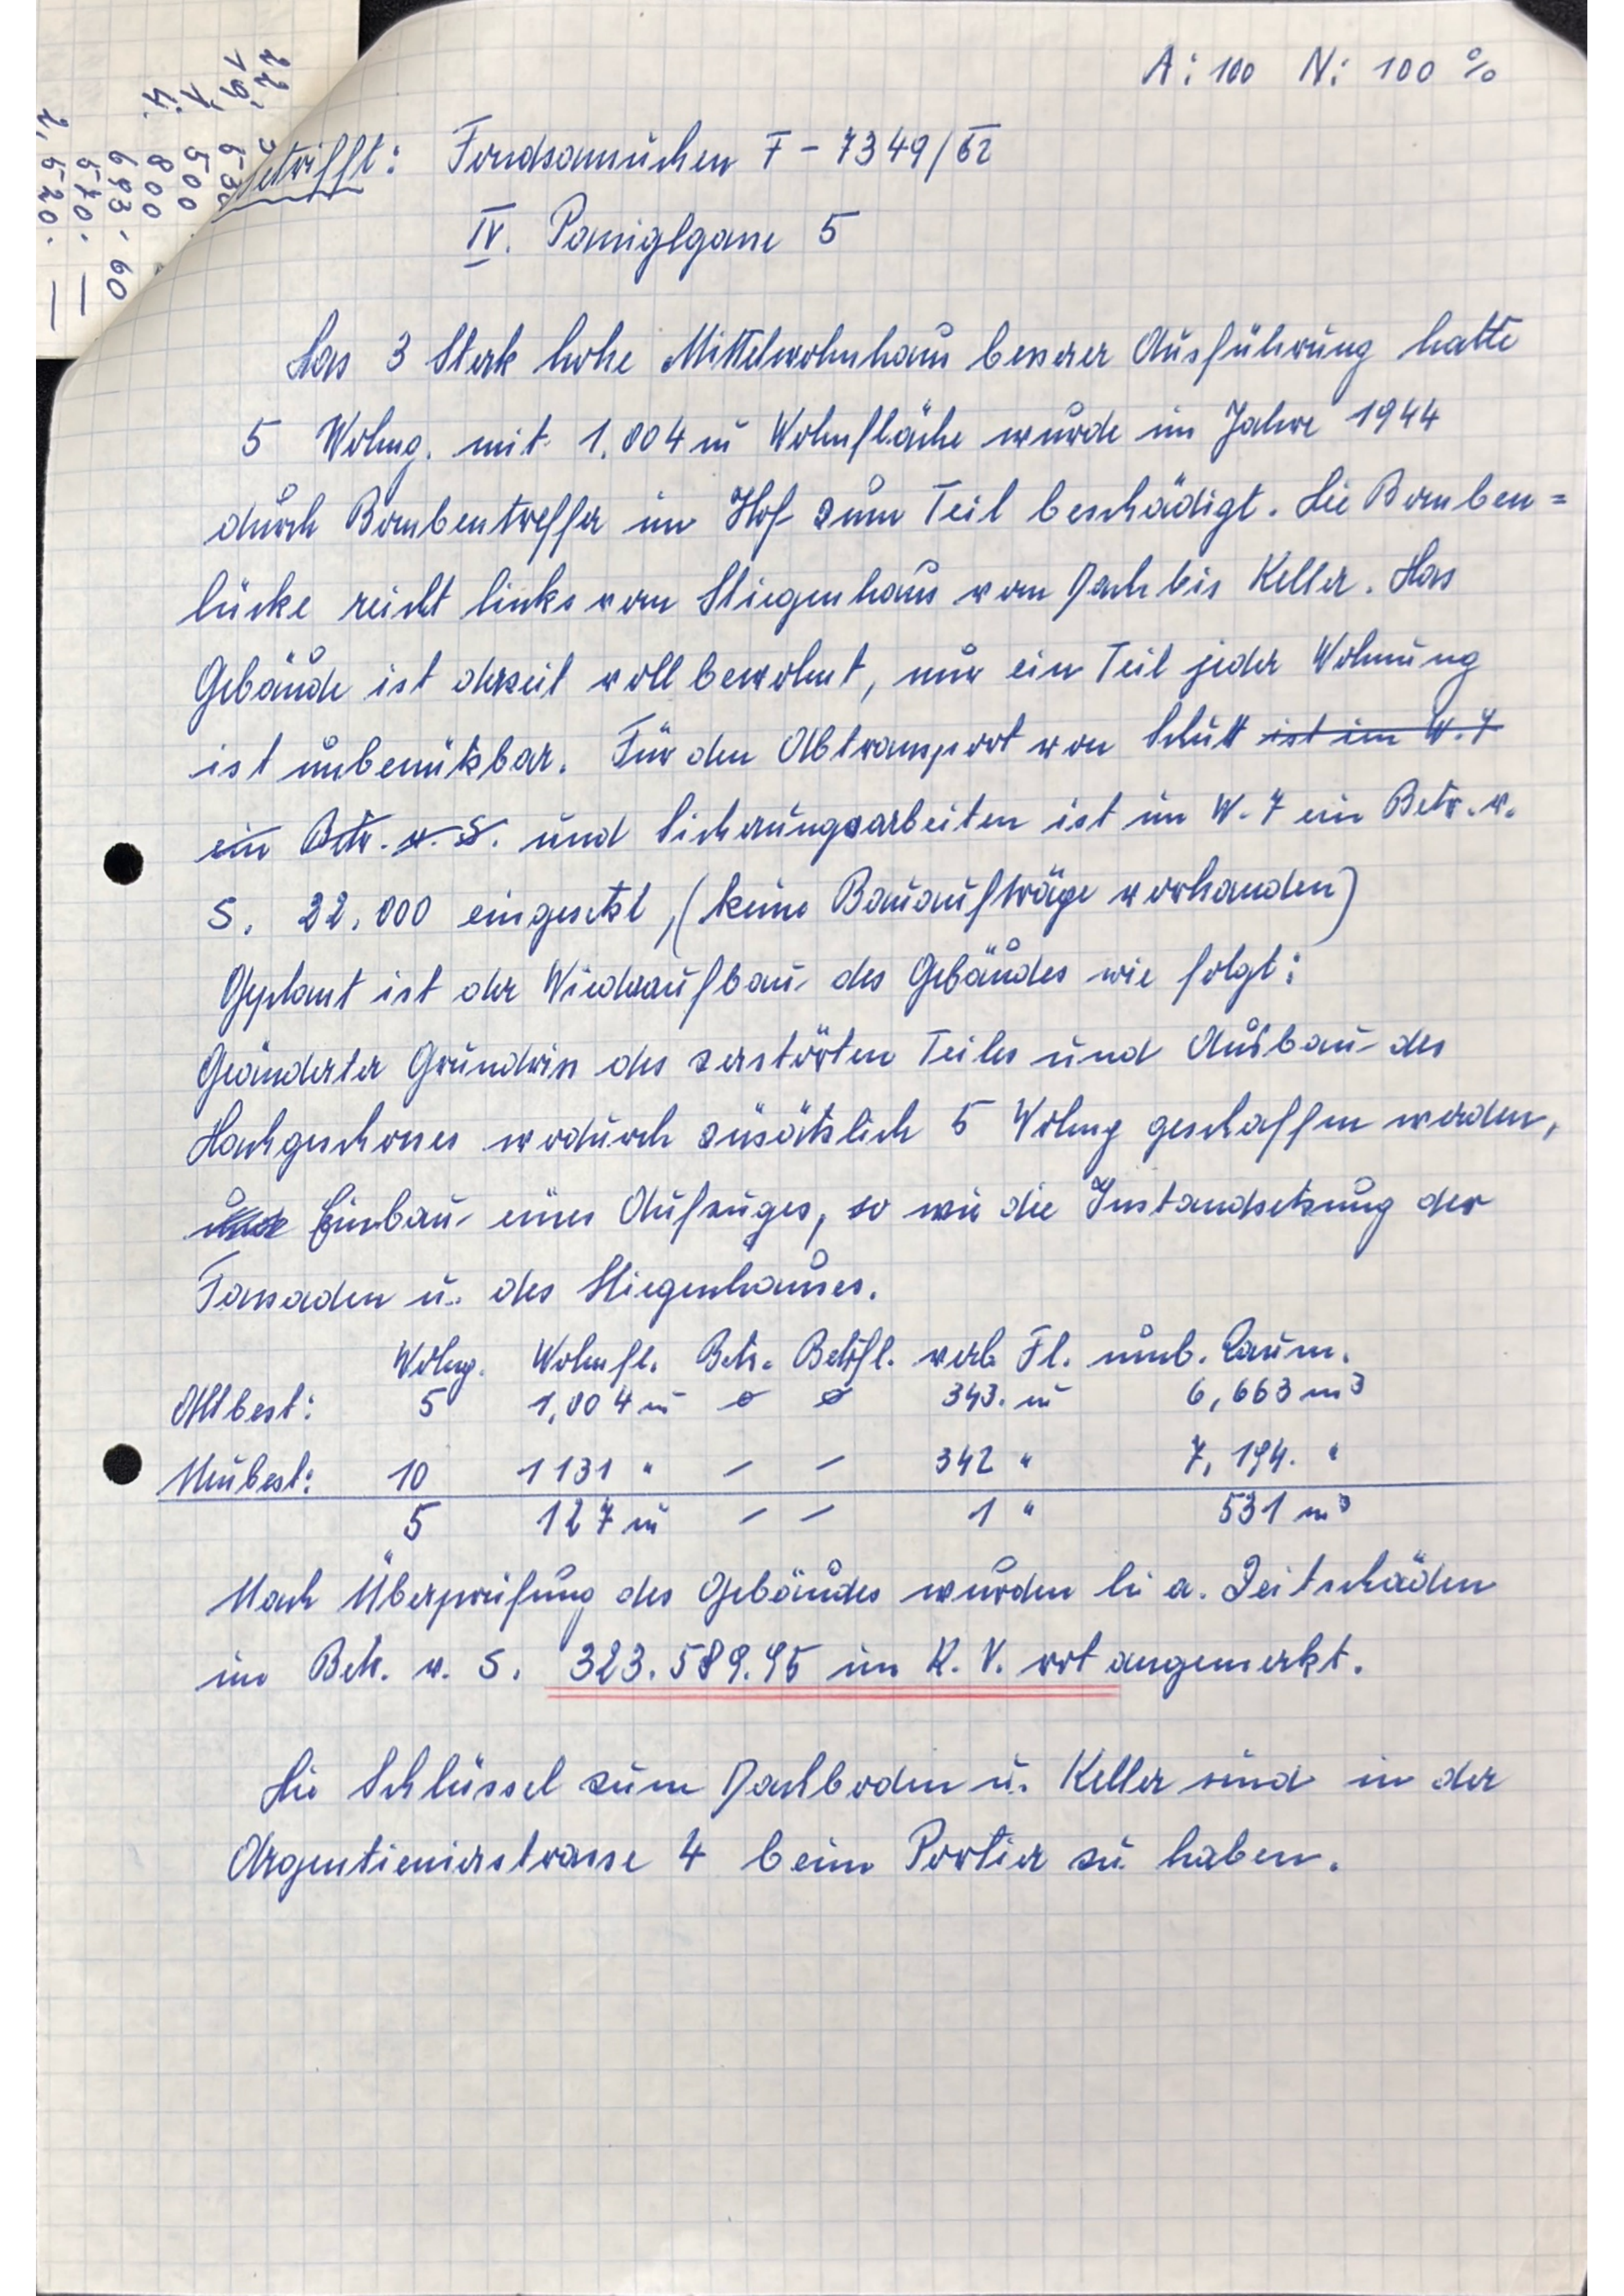 A: 100 N: 100 %
22.
19.
1. 500
4. 800
693.60
570.—
2,520.—
etrifft: Fondsansuchen F - 7349/62
IV. Paniglgasse 5
Das 3 Stock hohe Mittelwohnhaus besserer Ausführung hatte
5 Wohng. mit 1.004 m² Wohnfläche wurde im Jahre 1944
durch Bombentreffer im Hof zum Teil beschädigt. Die Bomben=
lücke reicht links vom Stiegenhaus vom Dach bis Keller. Das
Gebäude ist derzeit voll bewohnt, nur ein Teil jeder Wohnung
ist unbenützbar. Für den Abtransport von Schutt ist im W. 7
ein Betr. v. S. und Sicherungsarbeiten ist im W. 7 ein Betr. v.
S. 22.000 eingesetzt, (keine Bauaufträge vorhanden)
Geplant ist der Wiederaufbau des Gebäudes wie folgt:
Geänderter Grundriss des zerstörten Teiles und Ausbau des
Dachgeschosses wodurch zusätzlich 5 Wohng geschaffen werden,
und Einbau eines Aufzuges, so wie die Instandsetzung der
Fassaden u. des Stiegenhauses.
Wohng. Wohnfl. Betr. Betrfl. verb. Fl. umb. Raum.
Altbest: 5 1,004 m² ø ø 343. m² 6,663 m³
Neubest: 10 1131 " – – 342 " 7,194. "
5 127 m² – – 1 " 531 m³
Nach Überprüfung des Gebäudes wurden lt. a. Zeitschäden
im Betr. v. S. 323.589.95 im K. V. rot angemerkt.
Die Schlüssel zum Dachboden u. Keller sind in der
Argentienierstrasse 4 beim Portier zu haben.